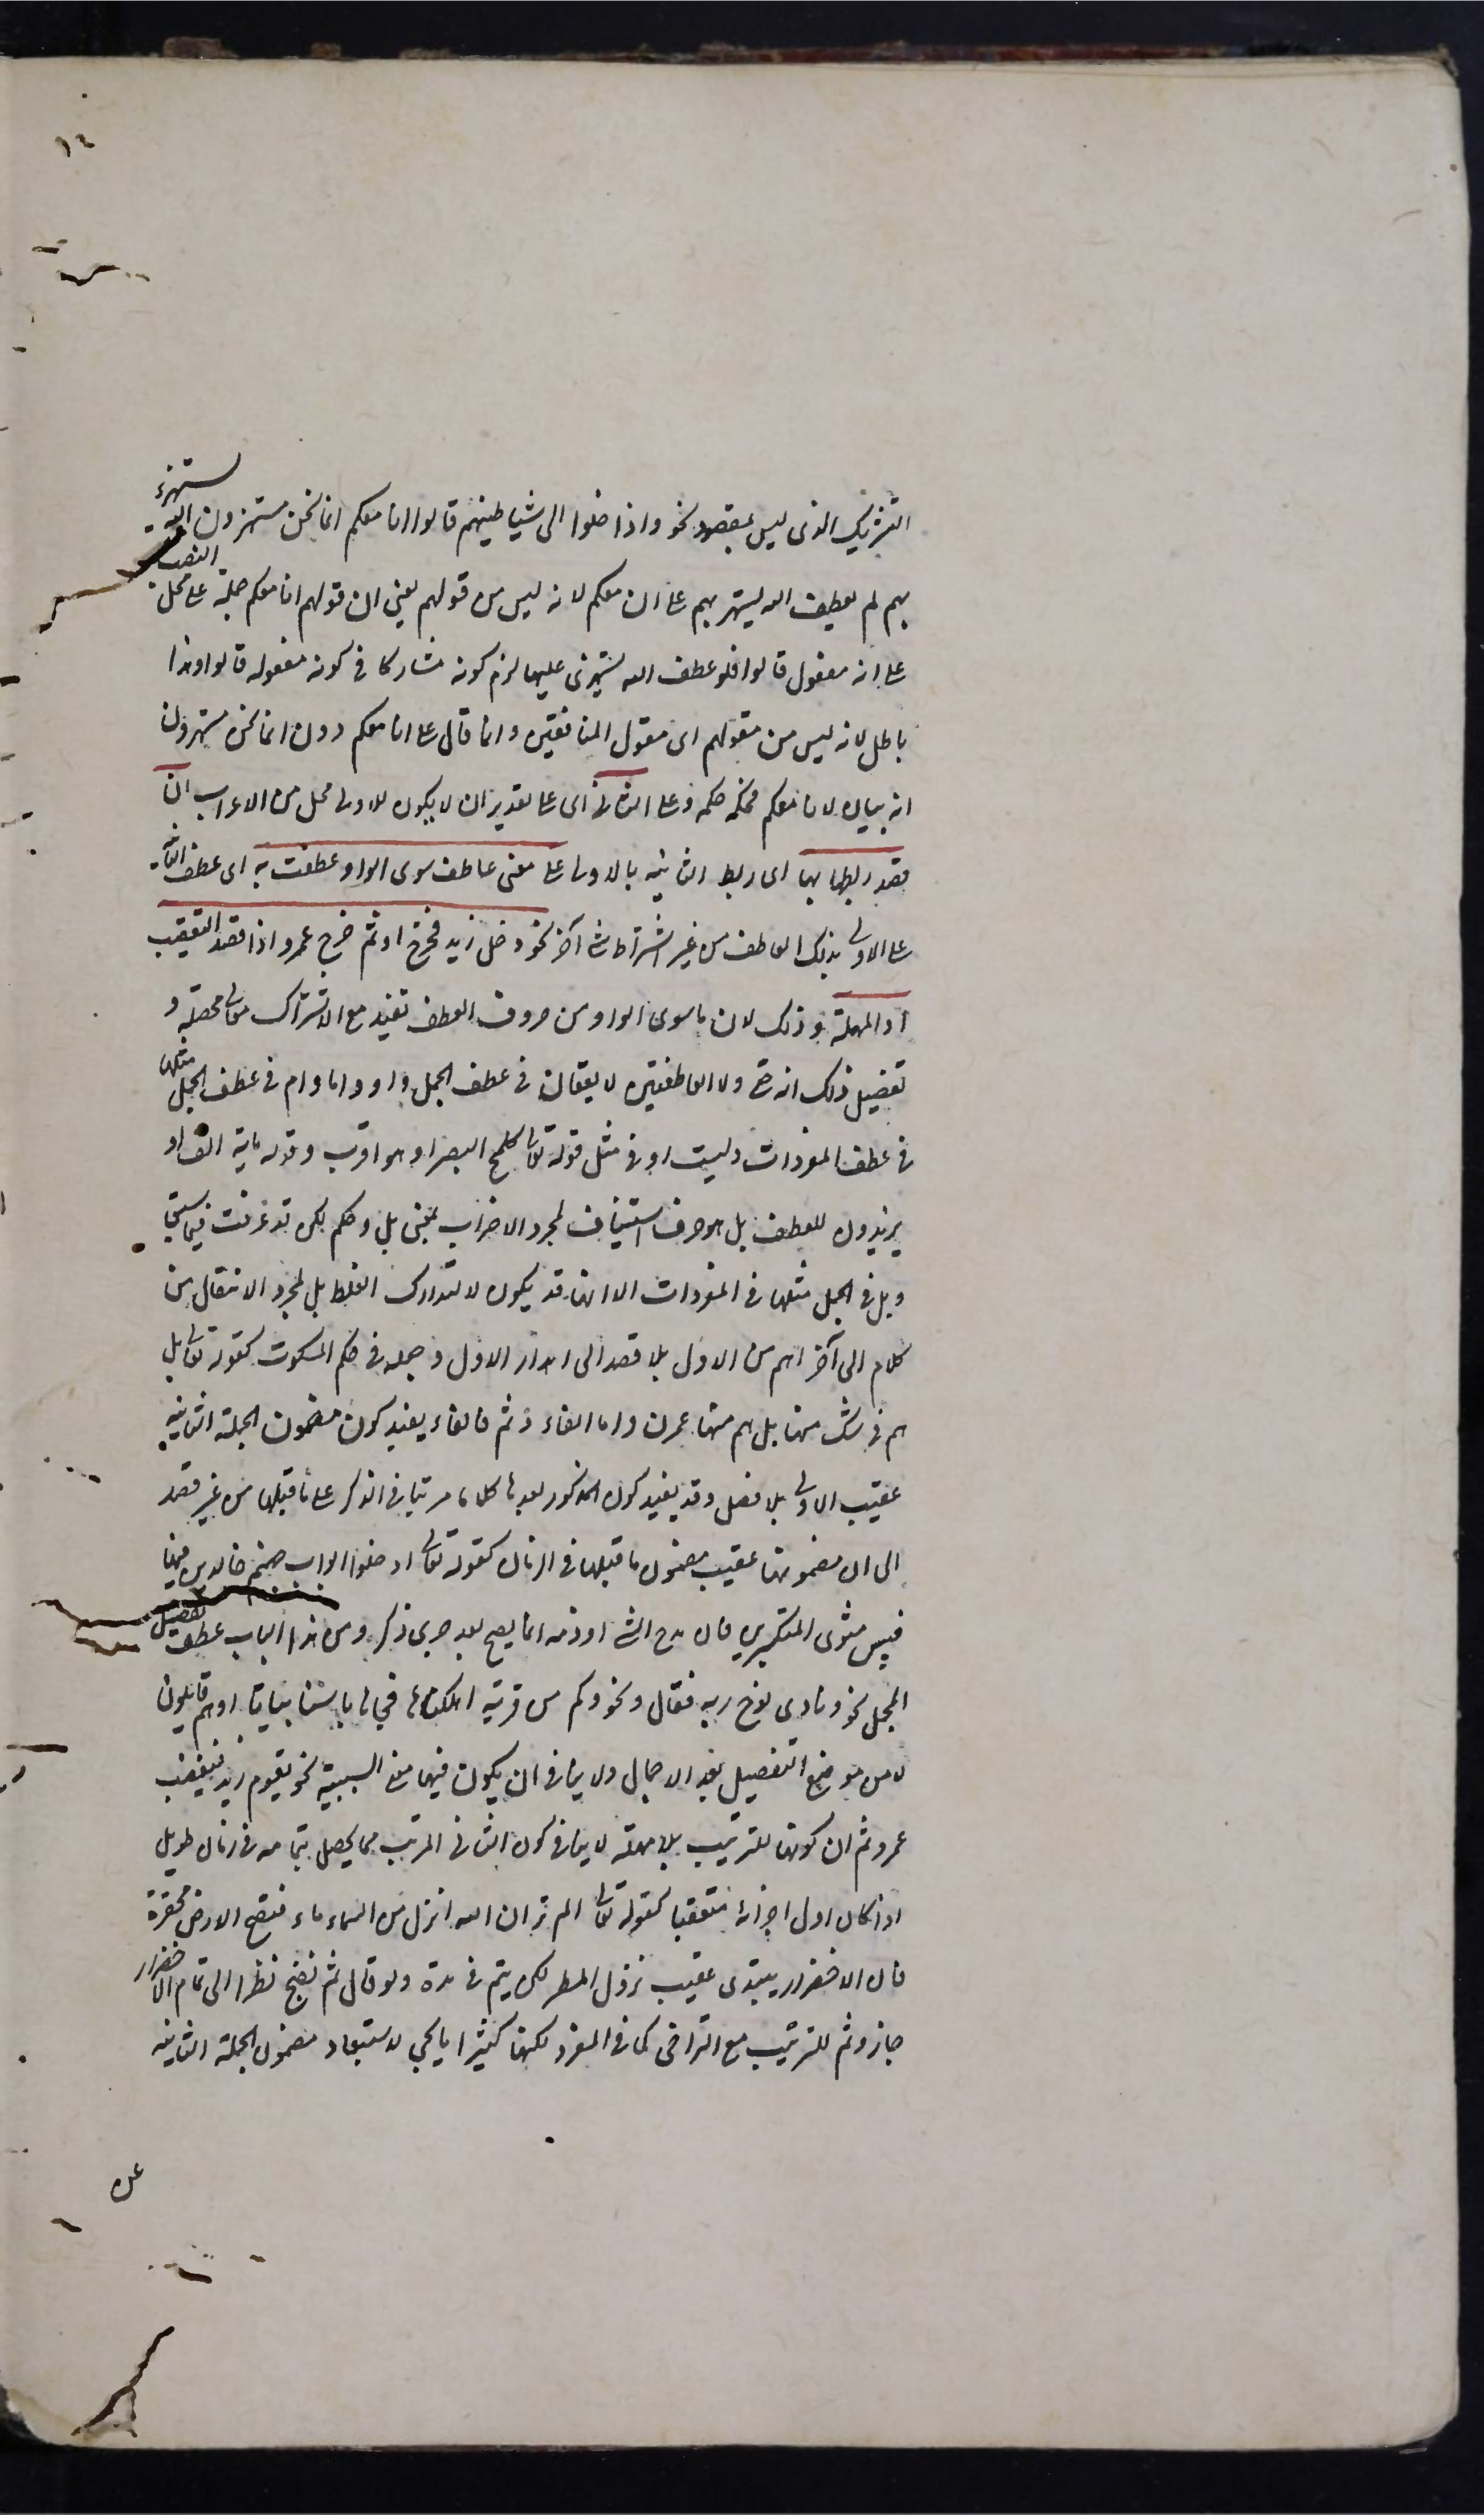 ١٤
التشريك الذى ليس بمقصود نحو واذا خلوا الى شياطينهم قالوا انا معكم انما نحن مستهزون الله يستهزء
بهم لم يعطف الله يستهز بهم على ان معكم لانه ليس من قولهم يعنى ان قولهم انا معكم جملة على محل النصب
على انه مفعول قالوا فلو عطف الله يستهزى عليها لزم كونه مشاركا فى كونه مفعوله قالوا وهذا
باطل لانه ليس من مقولهم اى مقول المنافقين وانما قال على انا معكم دون انما نحن مستهزون
انه بيان لانا معكم فحكمه حكمه وعلى الثانى اى على تقدير ان لا يكون للاولى محل من الاعراب ان
قصد ربطها بها اى ربط الثانية بالاولى على معنى عاطف سوى الواو عطفت به اى عطف الثانية
على الاولى بذلك العاطف من غير اشتراط شئ آخر نحو دخل زيد فخرج او ثم خرج عمرو اذا قصد التعقيب
او المهلة وذلك لان ما سوى الواو من حروف العطف تفيد مع الاشتراك معانى محصلة و
تفصيل ذلك ان حتى ولا العاطفتين لا يقعان فى عطف الجمل واو واما وام فى عطف الجمل مثلها
فى عطف المفردات وليست او فى مثل قوله تعالى كلمح البصر او هو اقرب وقوله ماية الف او
يزيدون للعطف بل هو حرف استيناف لمجرد الاضراب بمعنى بل وحكم لكن قد عرفت فيما سبق
وبل فى الجمل مثلها فى المفردات الا انها قد يكون لا لتدارك الغلط بل لمجرد الانتقال من
كلام الى آخر اهم من الاول بلا قصد الى اهدار الاول وجعله فى حكم المسكوت كقوله تعالى بل
هم فى شك منها بل هم منها عمون واما الفاء وثم فالفاء يفيد كون مضمون الجملة الثانية
عقيب الاولى بلا فصل وقد يفيد كون المذكور بعدها كلاما مرتبا فى الذكر على ما قبلها من غير قصد
الى ان مضمونها عقيب مضمون ما قبلها فى الزمان كقوله تعالى ادخلوا ابواب جهنم خالدين فيها
فبيس مثوى المتكبرين فان مدح الشئ او ذمه انما يصح بعد جرى ذكره ومن هذا الباب عطف تفصيل
المجمل نحو ونادى نوح ربه فقال ونحو وكم من قرية اهلكناها فجاءها باسنا بياتا او هم قايلون
لا من موضع التفصيل بعد الاجمال ولا ينافى ان يكون فيها معنى السببية نحو يقوم زيد فيغضب
عمرو ثم ان كونها للترتيب بلا مهلة لا ينافى كون الثانى المرتب مما يحصل بتمامه فى زمان طويل
اذا كان اول اجزائه متعقبا كقوله تعالى الم تر ان الله انزل من السماء ماء فتصبح الارض مخضرة
فان الاخضرار يبتدى عقيب نزول المطر لكن يتم فى مدة ولو قال ثم تصبح نظرا الى تمام الاخضرار
جاز وثم للترتيب مع التراخى كما فى المفرد لكنها كثيرا ما يجئ لاستبعاد مضمون الجملة الثانية
عن